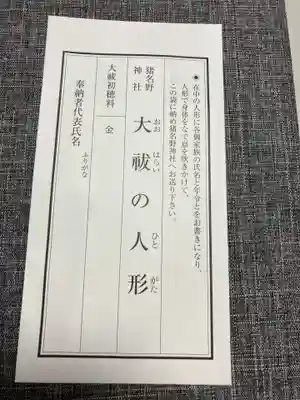 ◆在中の人形に各個家族の氏名と年令とをお書きになり、
人形で身体をなで息を吹きかけて、
この袋に納め猪名野神社へお送り下さい。
猪名野
神社
大祓の人形
おお はらい ひと がた
大祓初穂料 金
奉納者代表氏名
ふりがな